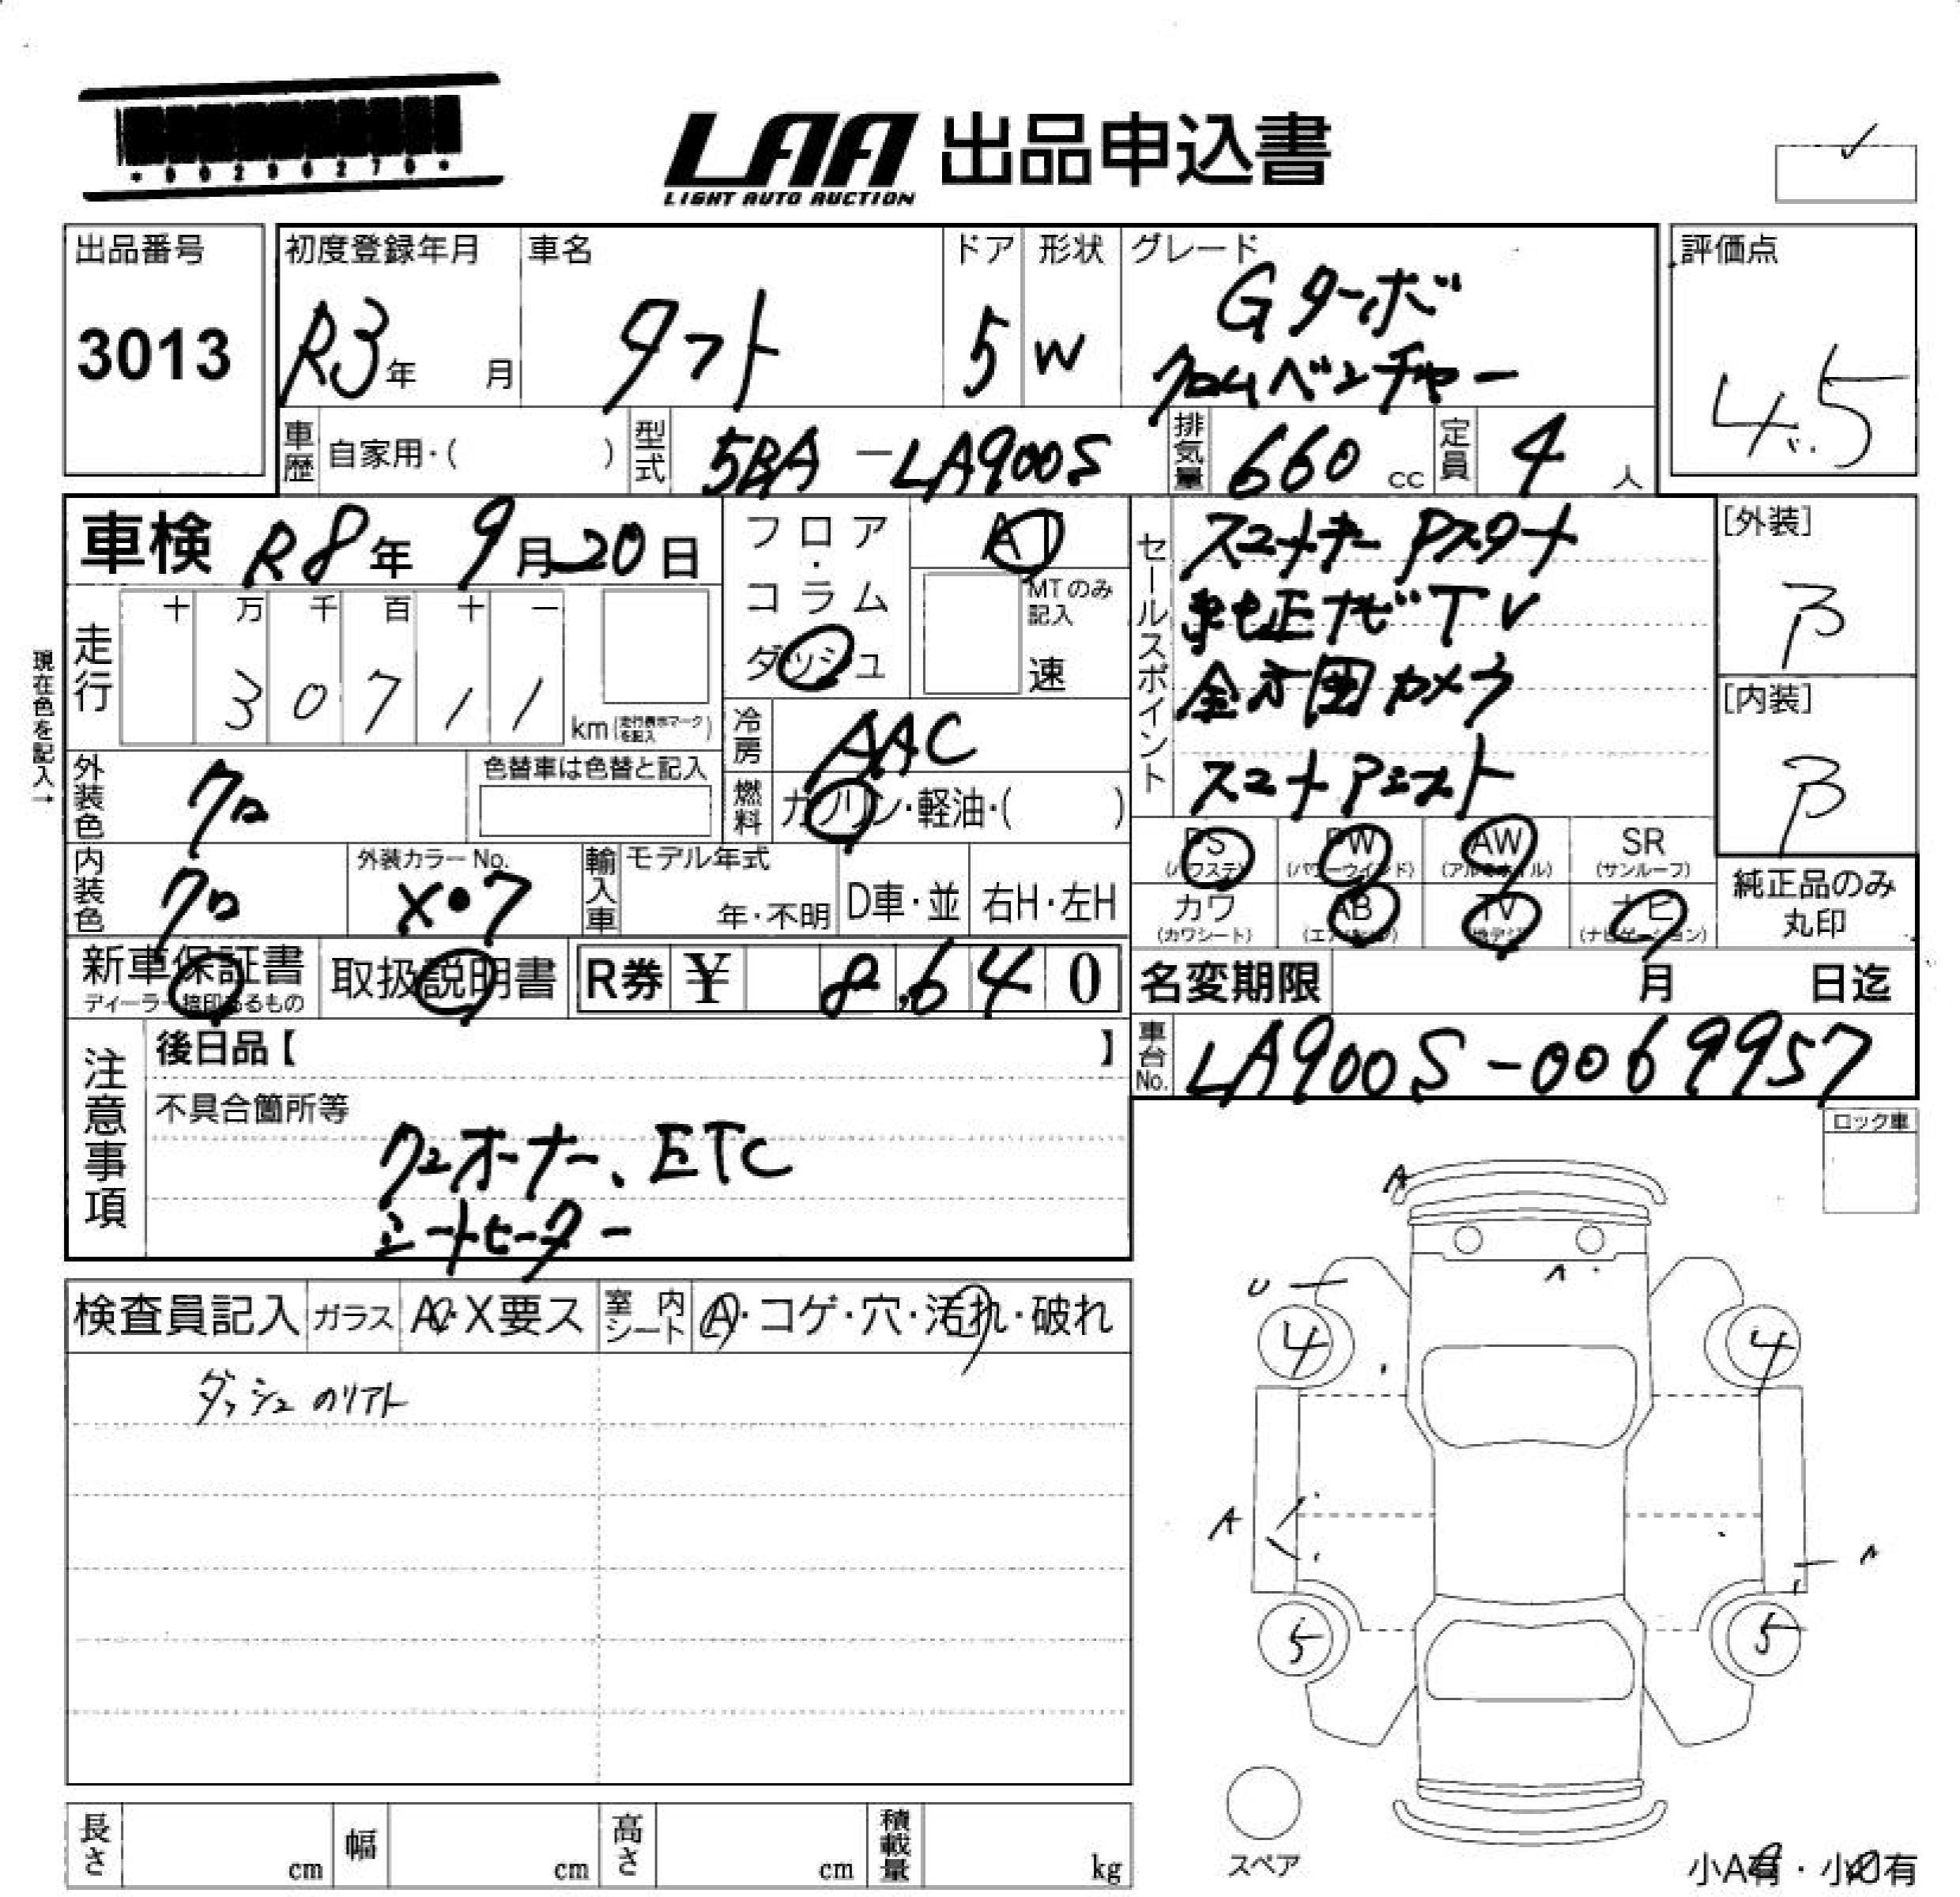 *00296270*
LAA 出品申込書
LIGHT AUTO AUCTION
出品番号
3013
初度登録年月
R3年 月
車名
タフト
ドア
5
形状
W
グレード
Gターボ
クロムベンチャー
評価点
4.5
車歴 自家用・( )
型式 5BA-LA900S
排気量 660 cc
定員 4 人
車検 R8年 9月20日
フロア・コラム
ダッシュ
AT
MTのみ記入
速
現在色を記入→
走行
十 万 千 百 十 一
3 0 7 1 1
km (走行表示マークを記入)
冷房 AAC
燃料 ガソリン・軽油・( )
外装色 クロ
色替車は色替と記入
内装色 クロ
外装カラーNo.
X07
輸入車 モデル年式
年・不明
D車・並
右H・左H
セールスポイント
スマートキー Pスタート
純正ナビTV
全方囲カメラ
スマートアシスト
[外装]
B
[内装]
B
PS (パワステ)
PW (パワーウインドウ)
AW (アルミホイル)
SR (サンルーフ)
カワ (カワシート)
AB (エアバック)
TV (地デジ)
ナビ (ナビゲーション)
純正品のみ
丸印
新車保証書
ディーラー捺印あるもの
取扱説明書
R券 ¥ 8,640
名変期限 月 日迄
車台No. LA900S-0069957
注意事項
後日品【 】
不具合箇所等
ワンオーナー、ETC
シートヒーター
ロック車
検査員記入
ガラス A・X要ス
室内シート A・コゲ・穴・汚れ・破れ
ダッシュのリアト
A
A
U
4 4
A
A
5 5
スペア
長さ cm
幅 cm
高さ cm
積載量 kg
小A有・小U有